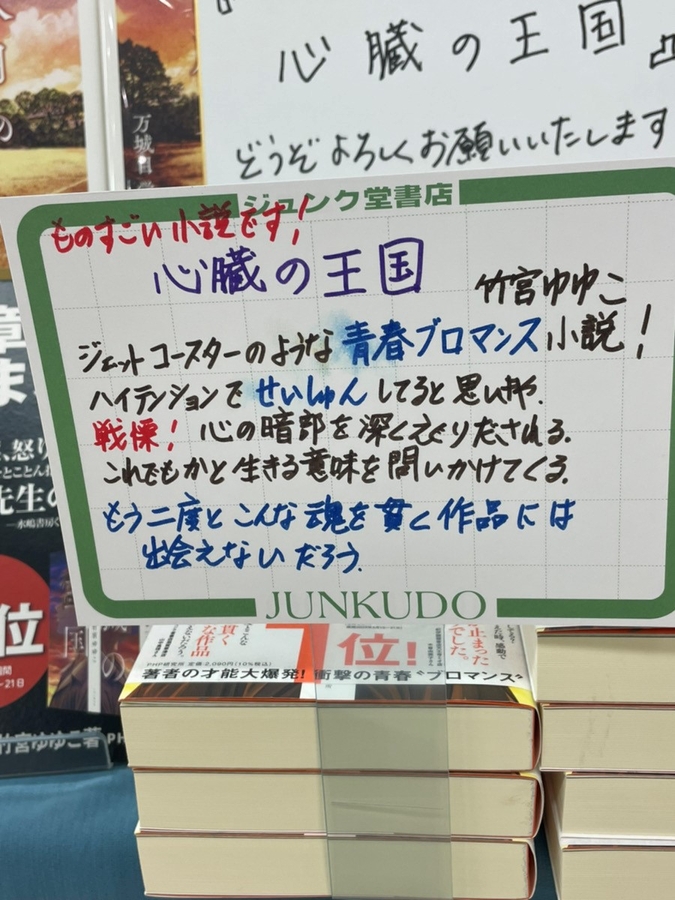 心臓の王国』
どうぞよろしくお願いいたします
万城目学
ジュンク堂書店
ものすごい小説です!
心臓の王国
竹宮ゆゆこ
ジェットコースターのような青春ブロマンス小説!
ハイテンションで せいしゅん してると思いきや、
戦慄! 心の暗部を深くえぐりだされる。
これでもかと生きる意味を問いかけてくる。
もう二度とこんな魂を貫く作品には
出会えないだろう。
JUNKUDO
1位!
PHP研究所 定価:2,090円(10%税込)
著者の才能大爆発!衝撃の青春"ブロマンス"
位
竹宮ゆゆこ著